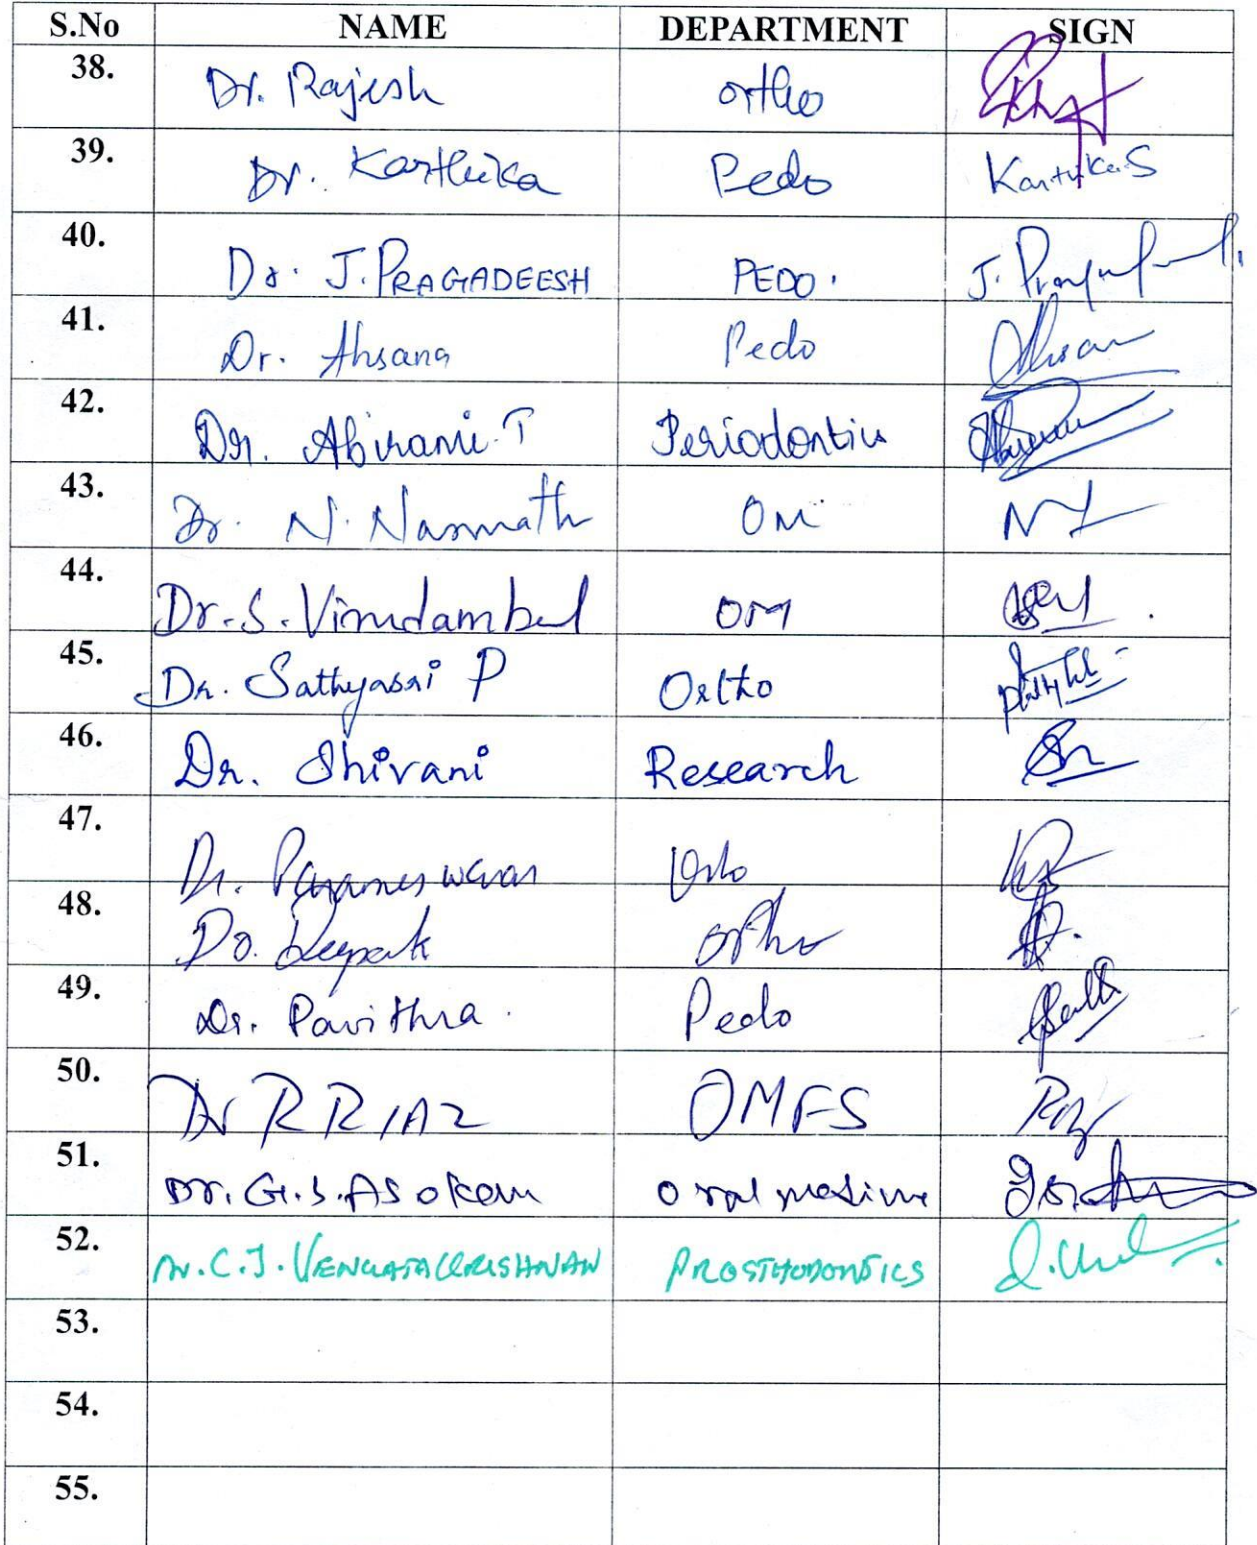 S.No NAME DEPARTMENT SIGN
38. Dr. Rajesh ortho
39. Dr. Karthika Pedo Karthika S
40. Dr. J. PRAGADEESH PEDO.
41. Dr. Ahsana Pedo Ahsan
42. Dr. Abirami. T Periodontics
43. Dr. N. Nasmath OM
44. Dr. S. OM
45. Dr. Sathyasri P Ortho
46. Dr. Shivani Research
47. Dr. Parameswaran Orto
48. Dr. Deepak ortho
49. Dr. Pavithra. Pedo
50. Dr R RIAZ OMFS
51. Dr. G. S. Asokan oral
52. Dr. C. J. VENKATAKRISHNAN PROSTHODONTICS
53.
54.
55.